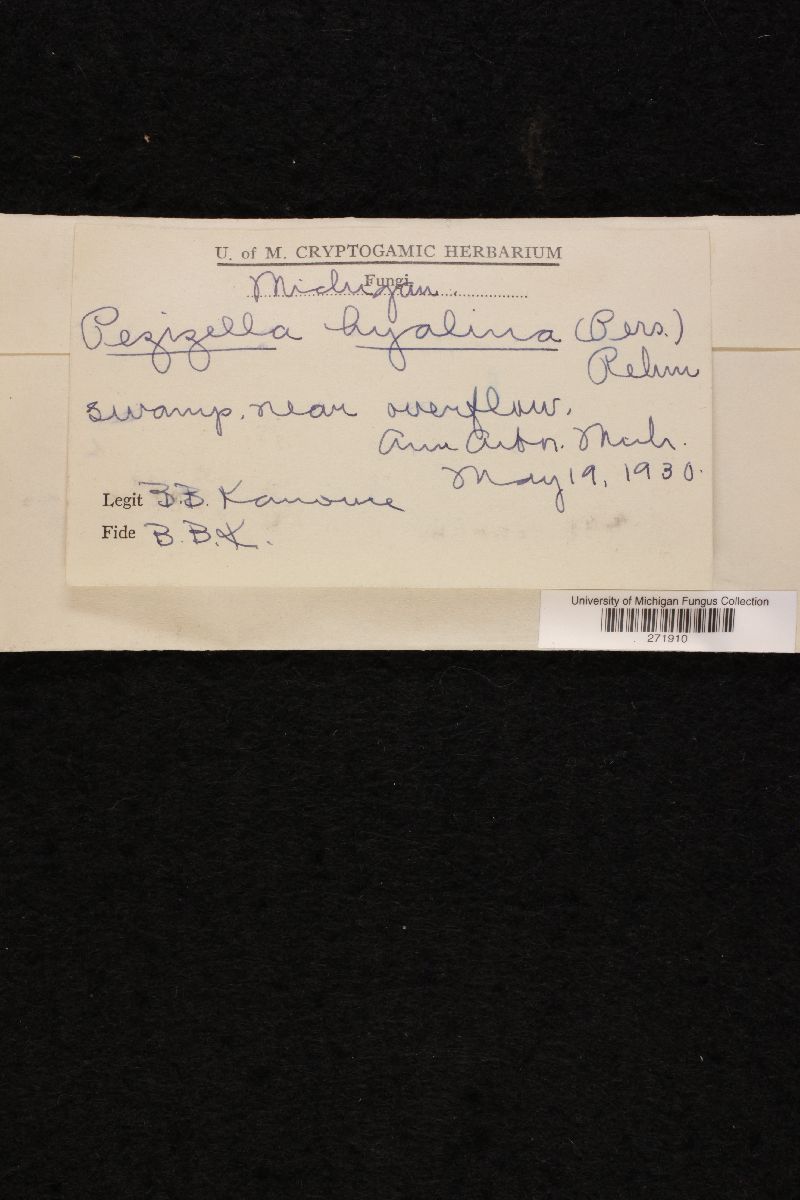 U. of M. CRYPTOGAMIC HERBARIUM
Fungi
Michigan.
Pezizella hyalina (Pers.)
Rehm
swamp, near overflow.
Ann Arbor. Mich.
May 19, 1930.
Legit B.B. Kanouse
Fide B.B.K.
University of Michigan Fungus Collection
271910